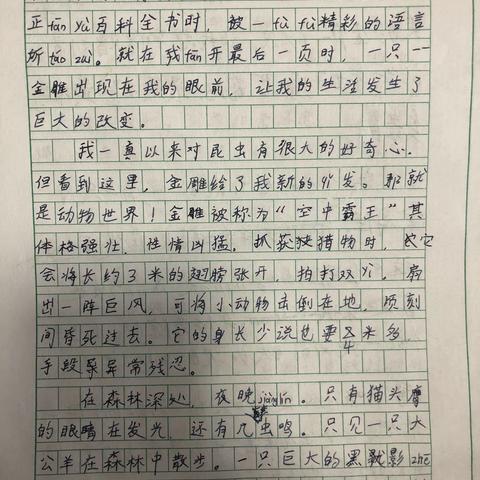 正fān yù百科全书时，被一fù fù精彩的语言
所táo zuì。就在我fān开最后一页时，一只
金雕出现在我的眼前，让我的生活发生了
巨大的改变。
我一直以来对昆虫有很大的好奇心。
但看到这里，金雕给了我新的发。那就
是动物世界！金雕被称为“空中霸王”其
体格强壮，性情凶猛。抓获狭猎物时，它
会将长约3米的翅膀张开，拍打双yì，扇
出一阵巨风，可将小动物击倒在地，顷刻
间昏死过去。它的身长少说也要米多，
手段异常残忍。
在森林深处，夜晚jiànglín。只有猫头鹰
的眼睛在发光，还有几虫鸣。只见一只大
公羊在森林中散步。一只巨大的黑影zhē